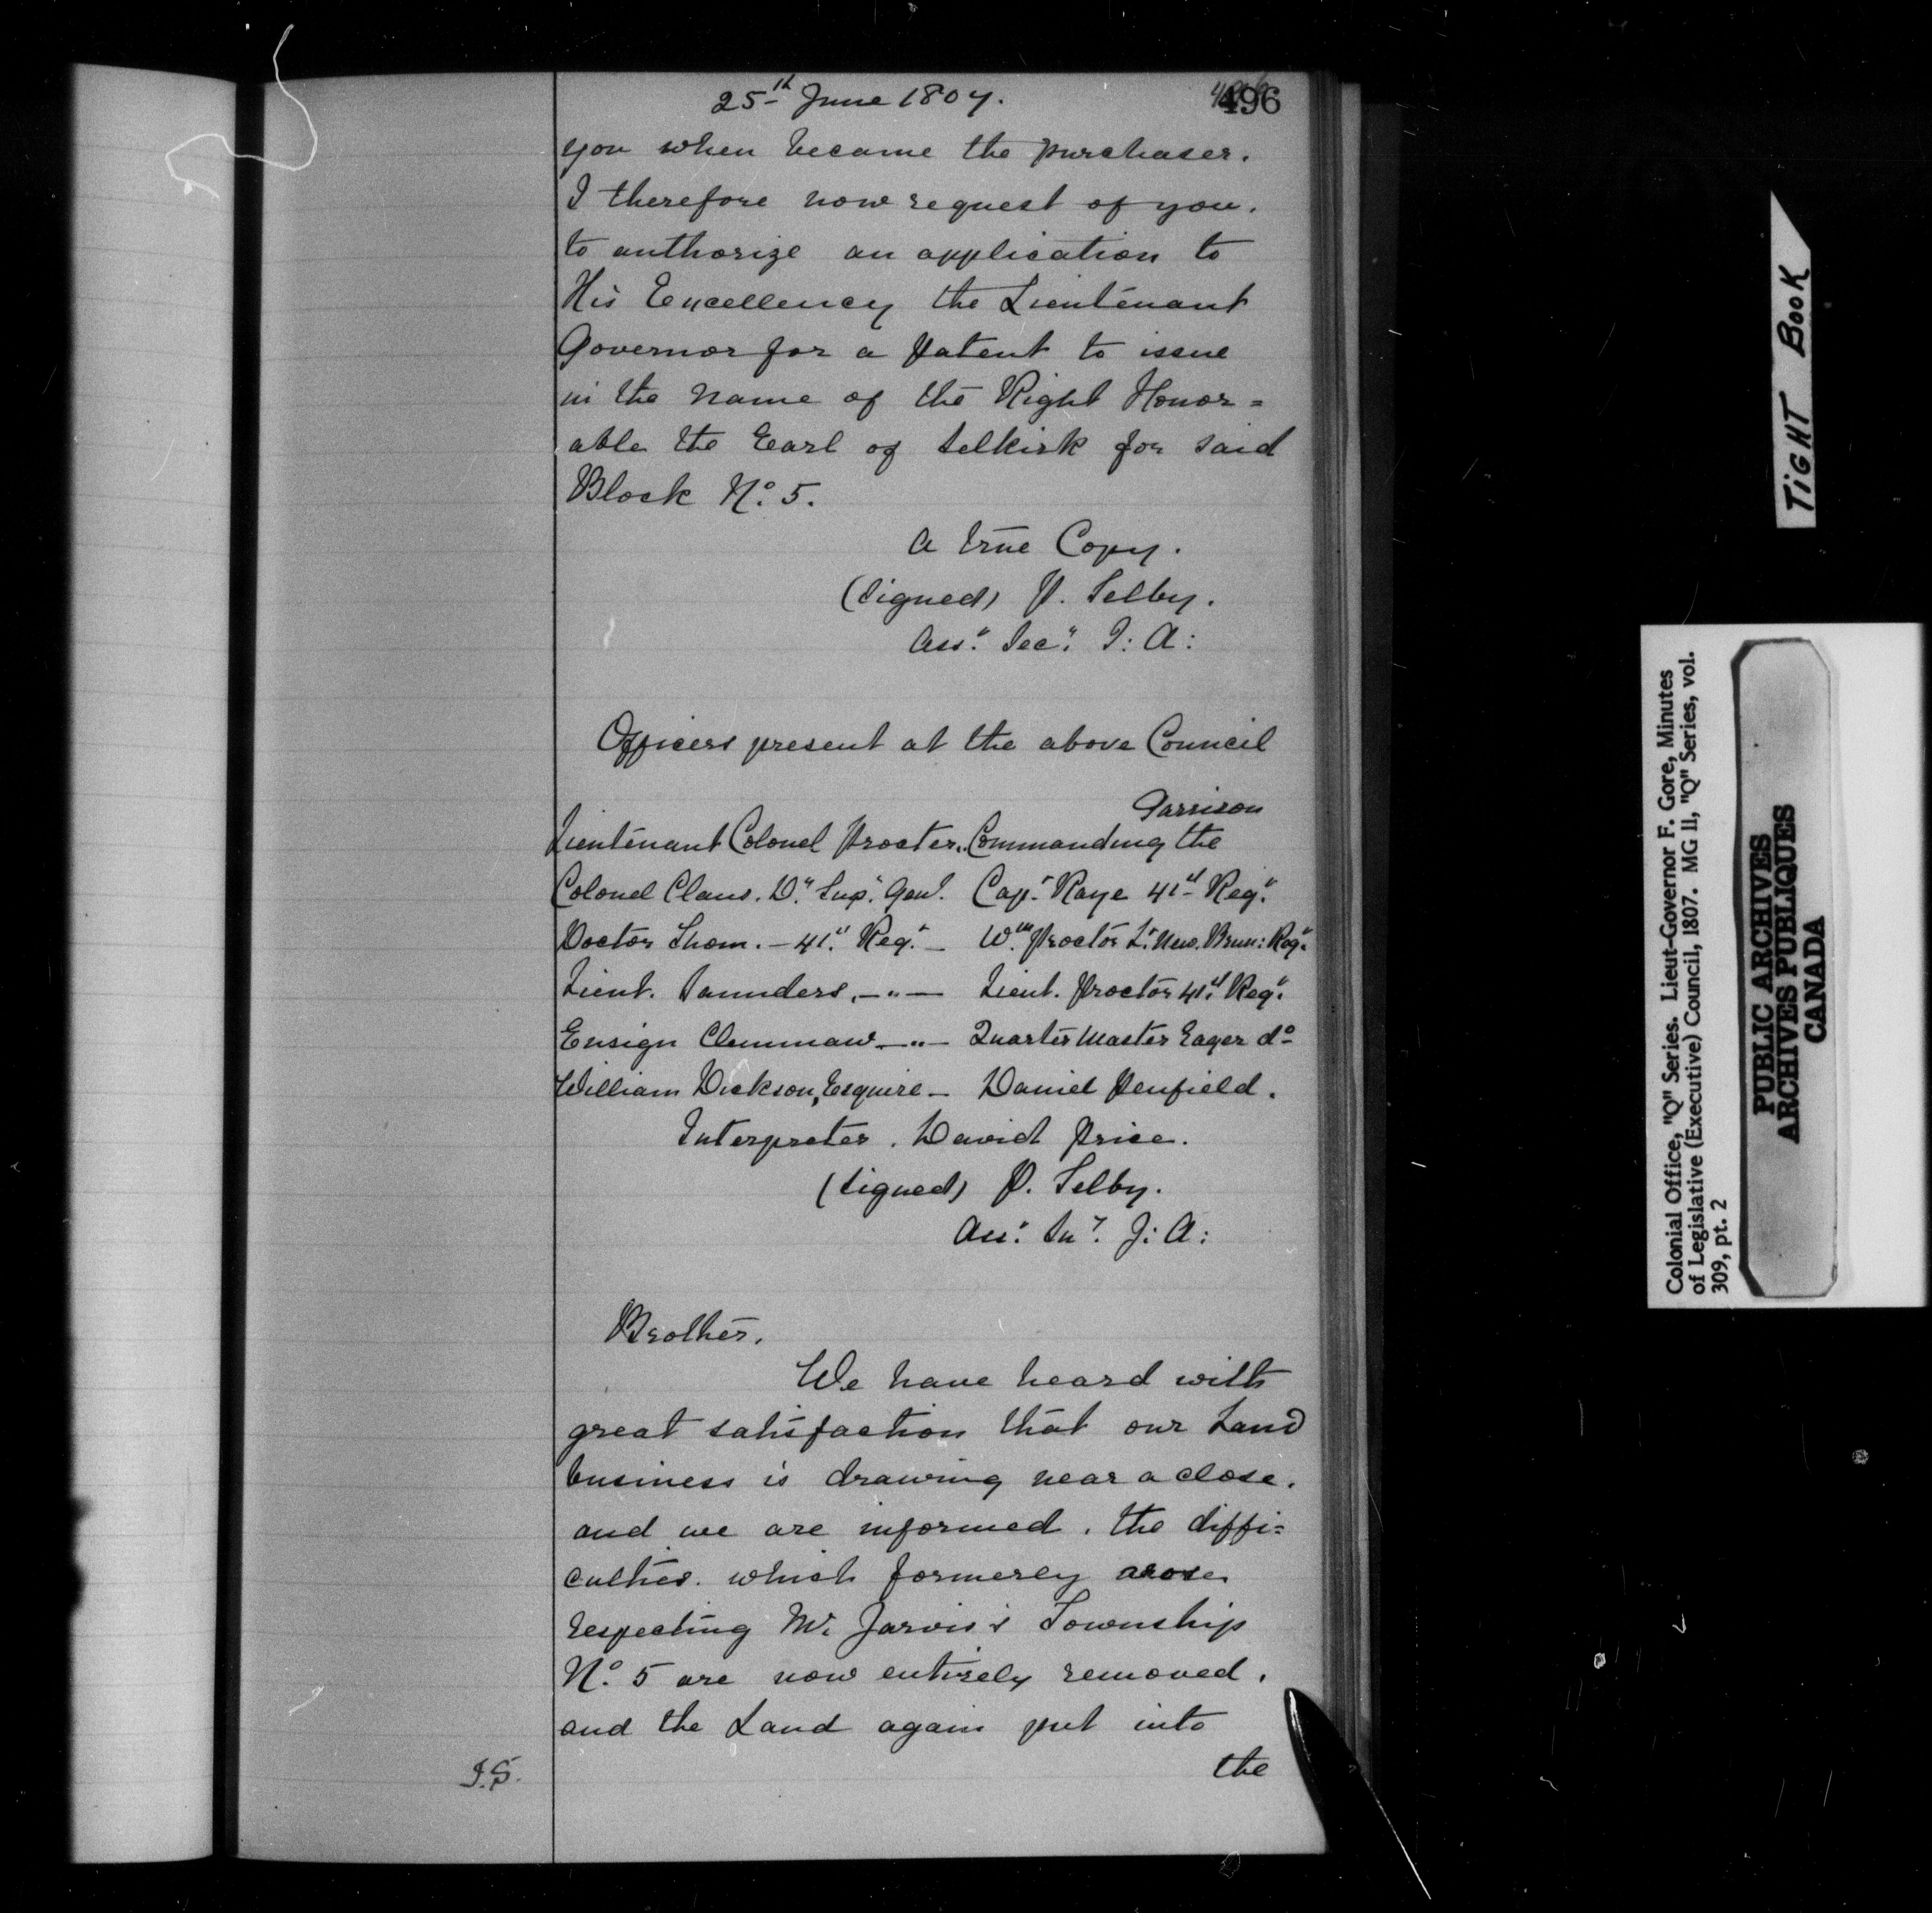 25th June 1807.
496
you when became the purchaser.
I therefore now request of you.
to authorize an application to
His Excellency the Lieutenant
Governor for a Patent to issue
in the name of the Right Honor=
able the Earl of Selkirk for said
Block No. 5.
A true Copy.
(Signed) P. Selby.
Ass.t Sec.y I: A:
Officers present at the above Council
Garrison
Lieutenant Colonel Procter. Commanding the
Colonel Claus. D.y Sup.t Gen.l Cap.t Raye 41st Reg.t
Doctor Thom. - 41.st Reg.t - W.m Proctor L.t New. Brun: Reg.t
Lieut. Saunders. - " - Lieut. Proctor 41.st Reg.t
Ensign - " - Quarter Master Eager do
William Dickson, Esquire - Daniel Penfield.
Interpreter. David Price.
(Signed) P. Selby.
Ass.t I: A:
Brother.
We have heard with
great satisfaction that our Land
business is drawing near a close.
and we are informed. the diffi=
culties. which formerly arose
respecting Mr. Jarvis's Township
No. 5 are now entirely removed.
and the Land again put into
the
I.S.
TIGHT BOOK
Colonial Office, "Q" Series. Lieut-Governor F. Gore, Minutes
of Legislative (Executive) Council, 1807. MG 11, "Q" Series, vol.
309, pt. 2
PUBLIC ARCHIVES
ARCHIVES PUBLIQUES
CANADA